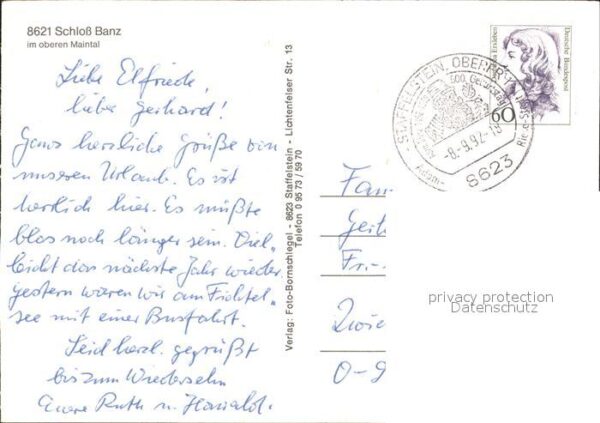 8621 Schloß Banz
im oberen Maintal
Liebe Elfriede,
lieber Gerhard!
Ganz herzliche Grüße von
unserem Urlaub. Es ist
herrlich hier. Es müßte
blos noch länger sein. Viel„
leicht das nächste Jahr wieder
gestern waren wir am Fichtel„
see mit einer Busfahrt.
Seid herzl. gegrüßt
bis zum Wiedersehn
Euere Ruth u.
Verlag: Foto-Bornschlegel - 8623 Staffelstein - Lichtenfelser Str. 13
Telefon 0 95 73 / 59 70
STAFFELSTEIN, OBERFR
500. Geburtstag
Adam-
-8.-9.92-18
8623
Deutsche Bundespost
60
Fam
Gerh
Fri-
Zwic
O-9
privacy protection
Datenschutz